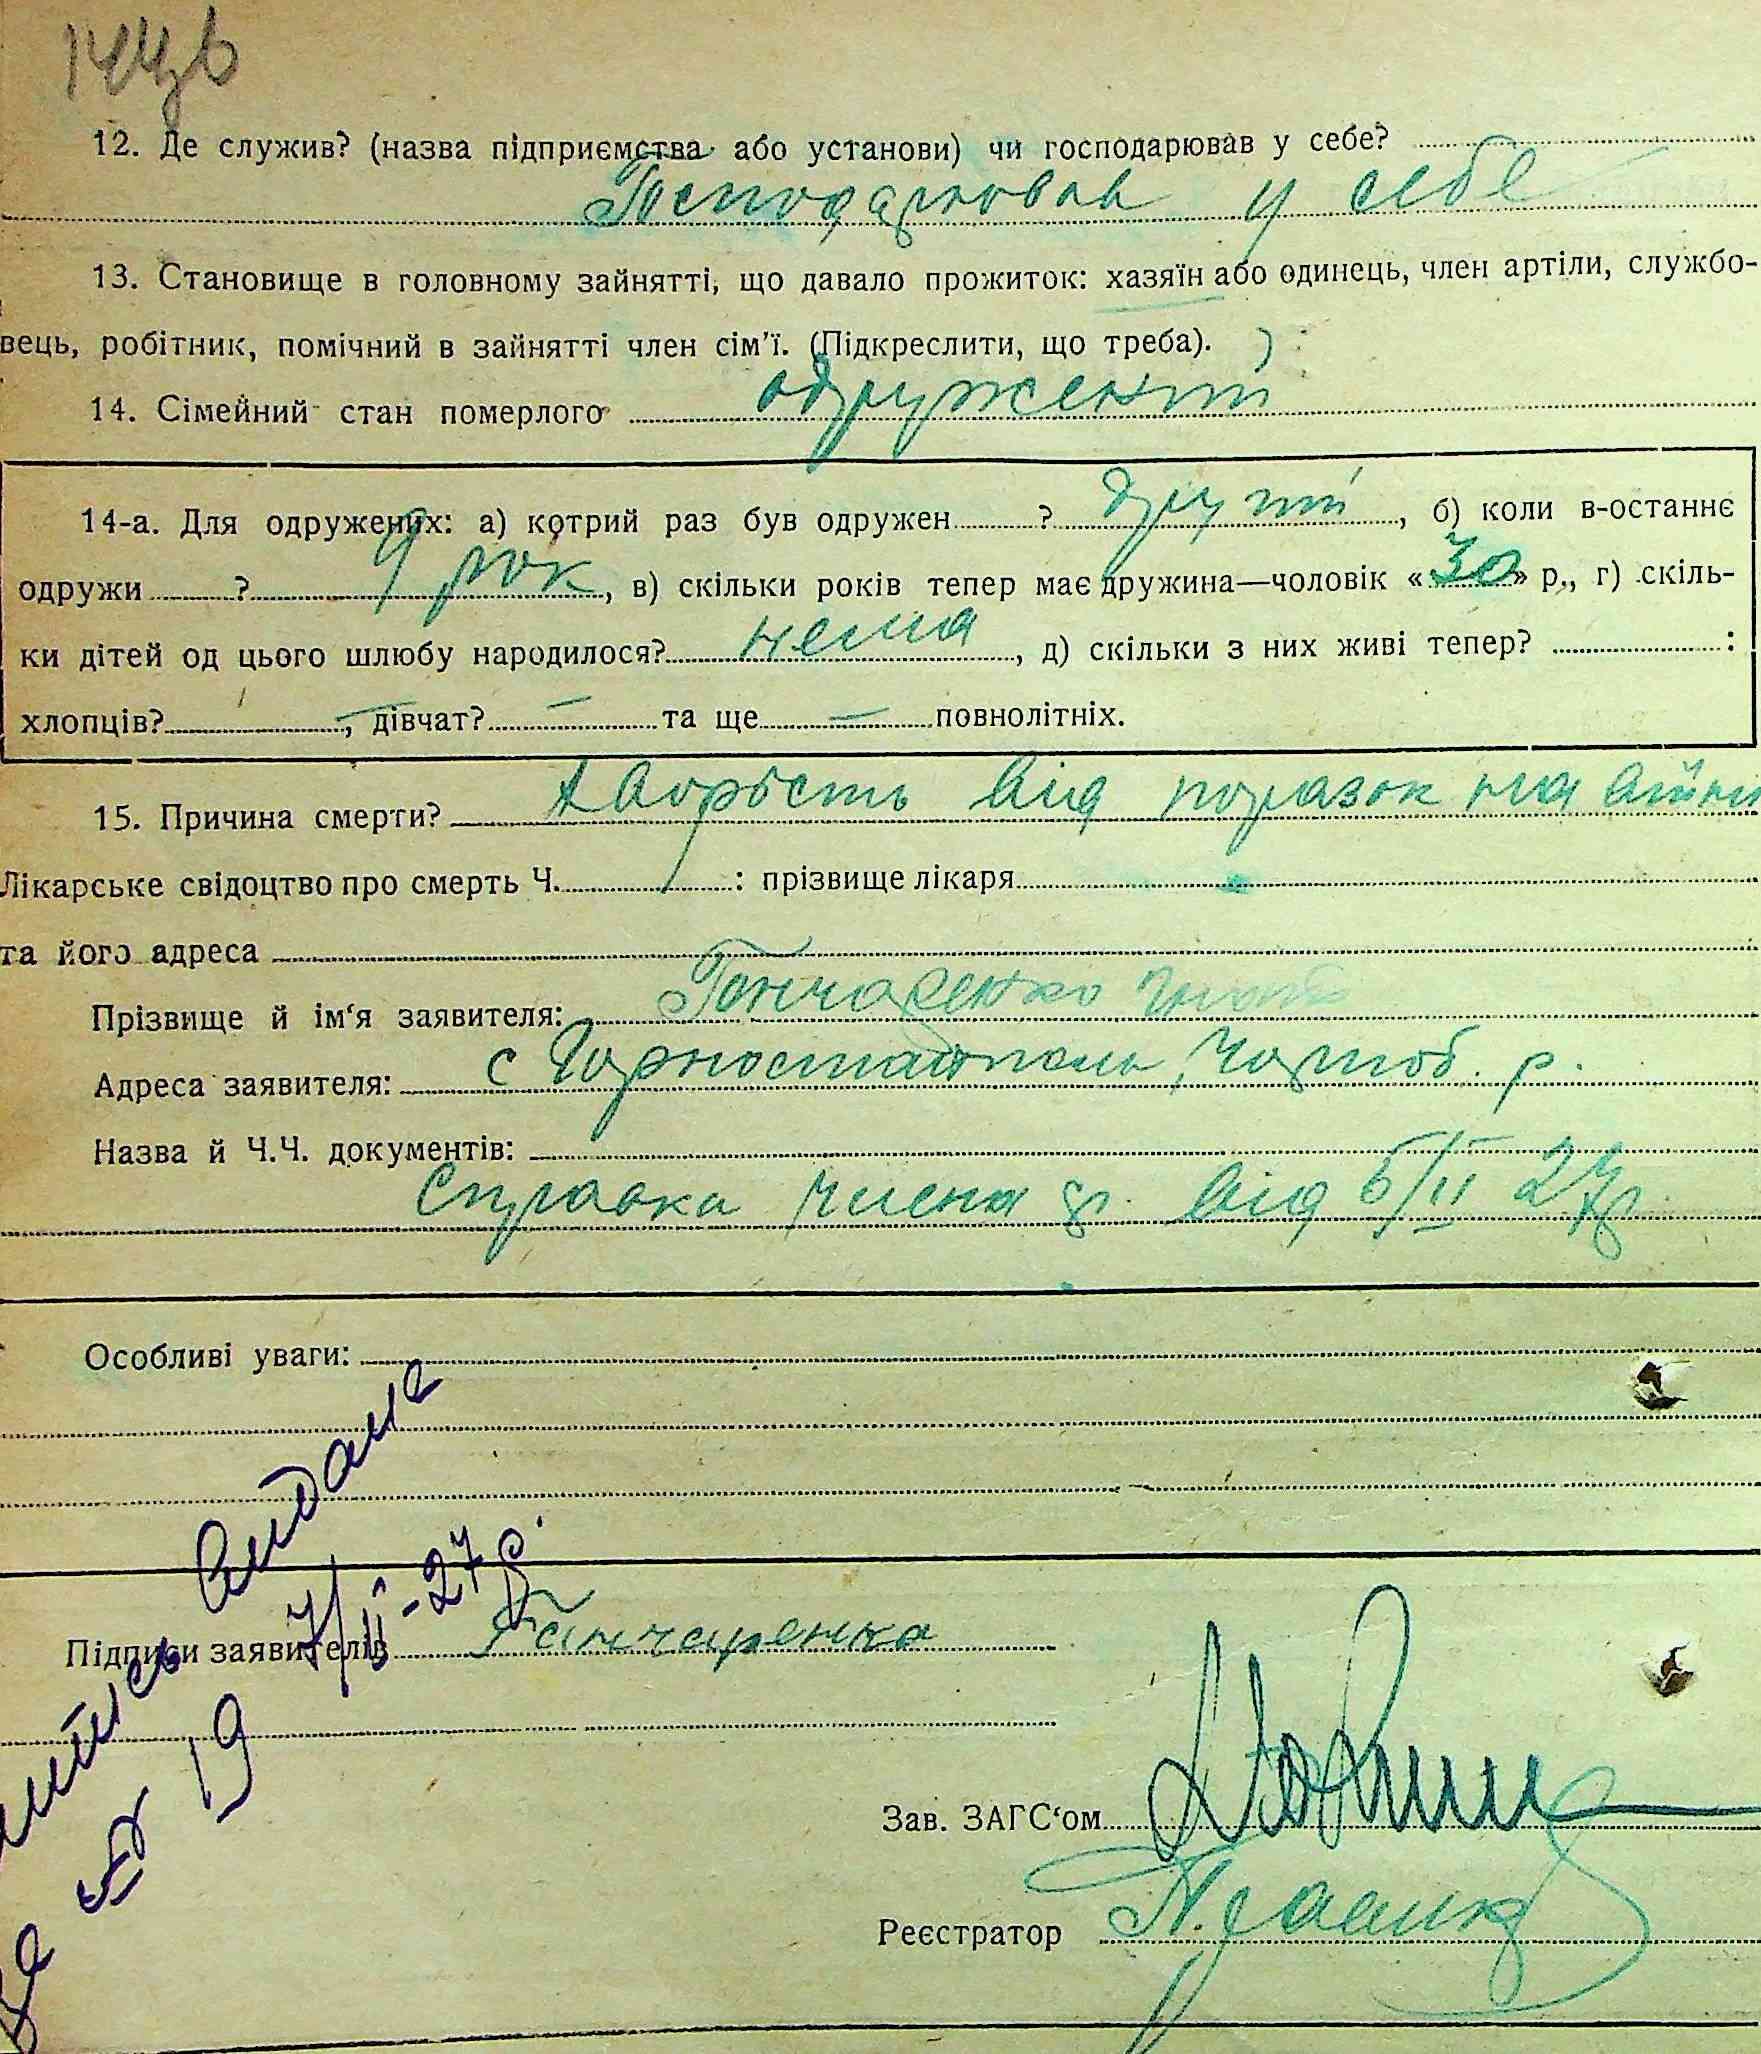 12. Де служив? (назва підприємства або установи) чи господарював у себе?
Господарював у себе
13. Становище в головному зайнятті, що давало прожиток: хазяїн або одинець, член артіли, службо-
вець, робітник, помічний в зайнятті член сім'ї. (Підкреслити, що треба).
14. Сімейний стан померлого одружений
14-а. Для одружених: а) котрий раз був одружен ? другий, б) коли в-останнє
одружи ? 9 рок, в) скільки років тепер має дружина—чоловік «30» р., г) скіль-
ки дітей од цього шлюбу народилося? нема, д) скільки з них живі тепер? :
хлопців? —, дівчат? — та ще — повнолітніх.
15. Причина смерти? Хворість від поразок на війни
Лікарське свідоцтво про смерть Ч. : прізвище лікаря
та його адреса
Прізвище й ім'я заявителя: Гончаренко
Адреса заявителя: с Горностайпіль, Чорноб. р.
Назва й Ч.Ч. документів:
Справка від 5/II 27р.
Особливі уваги:
видане
7/II-27 р.
Підписи заявителів Ганчаренко
19
Зав. ЗАГС'ом
Реєстратор